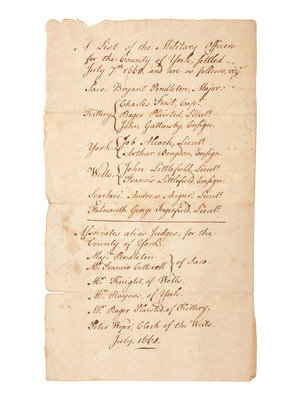 A List of the Military Officers
for the County of York, settled
July 7th 1668. and are as follows, viz
Saco. Bryant Pendleton, Major.
Charles Frost, Capt.
Kittery Roger Plaisted, Lieut.
John Gattensby, Ensign.
York Job Alcock, Lieut.
Arthur Bragdon, Ensign.
Wells John Littlefield, Lieut.
Francis Littlefield, Ensign.
Scarboro' Andrew Augur, Lieut.
Falmouth George Ingersfield, Lieut.
Associates alias Judges, for the
County of York.
Maj. Pendleton.
Mr. Francis Cotterell of Saco.
Mr. Knight, of Wells.
Mr. Raynes, of York.
Mr. Roger Plaisted, of Kittery.
Peter Wyer, Clerk of the Writs.
July. 1668.